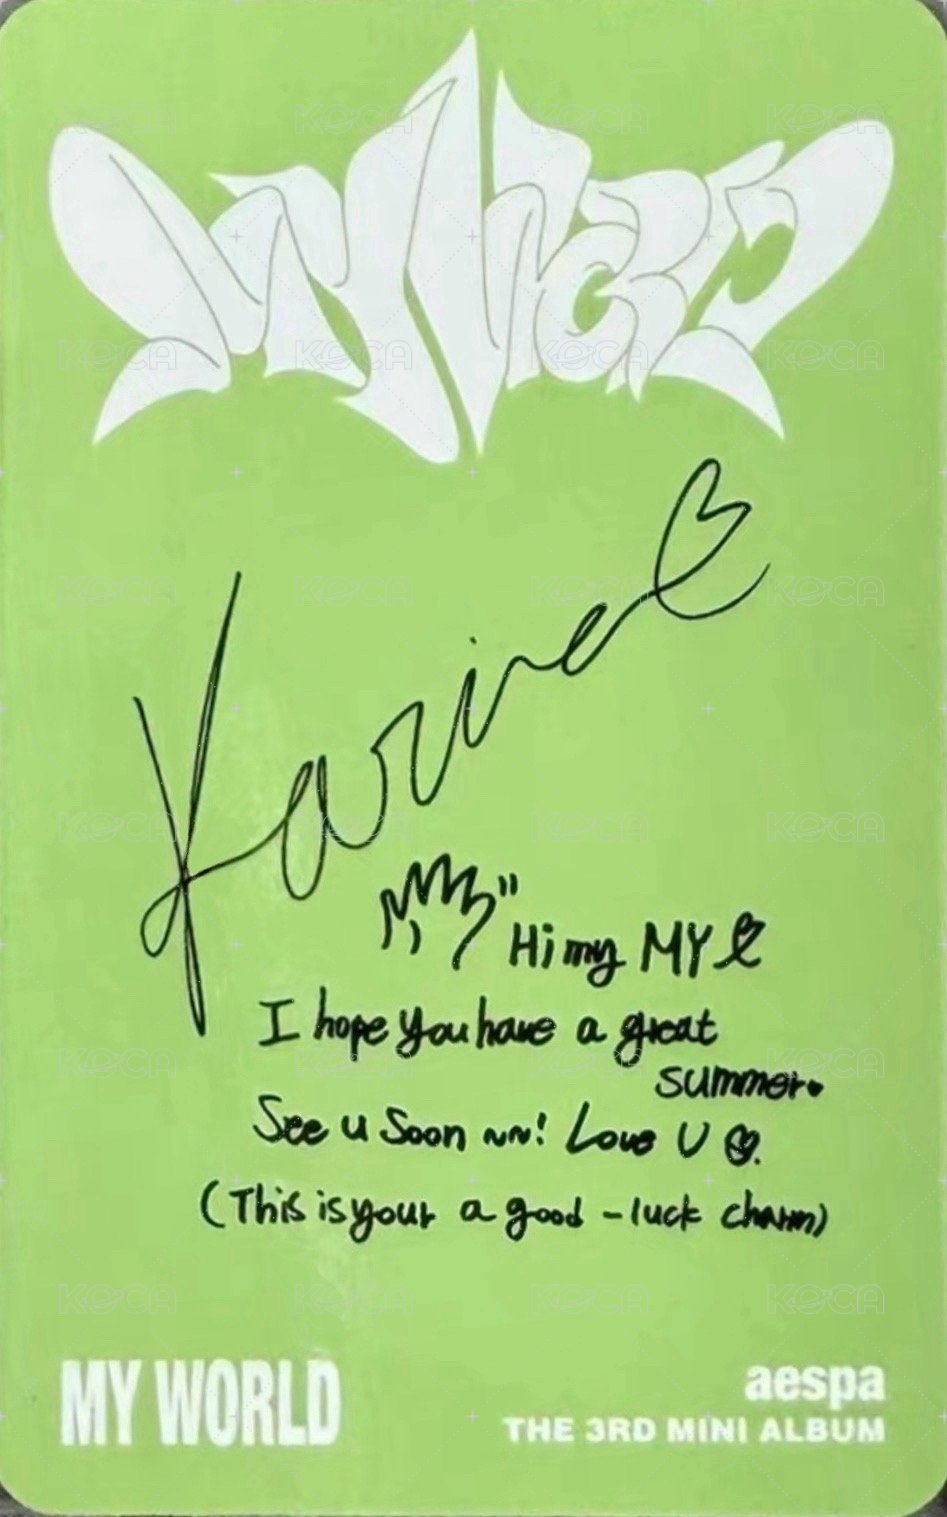 MY WORLD
Karina
Hi my MY
I hope you have a great
summer.
See u Soon ~~! Love U
(This is your a good-luck charm)
MY WORLD
aespa
THE 3RD MINI ALBUM
KOCA